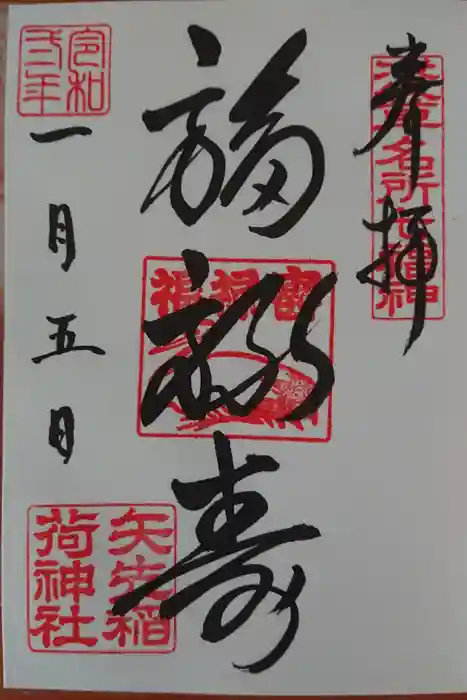 奉拝
浅草名所七福神
福禄寿
福禄寿
令和弐年
一月五日
矢先稲荷神社